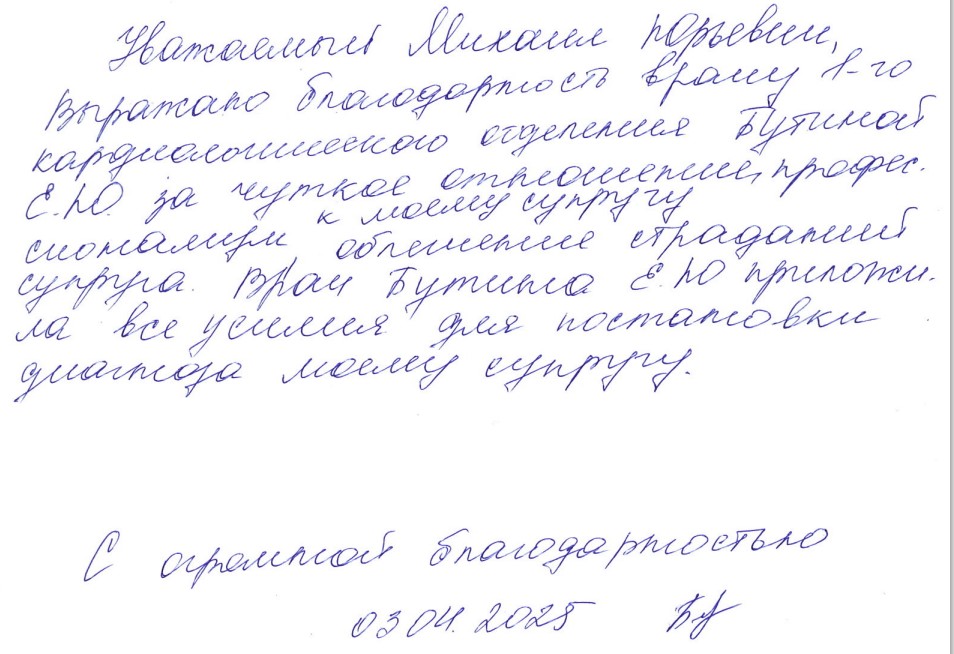 Уважаемый Михаил Юрьевич,
Выражаю благодарность врачу 1-го
кардиологического отделения Бутиной
Е.Ю. за чуткое отношение, профес-
к моему супругу
сионализм облегчение страданий
супруга. Врач Бутина Е.Ю приложи-
ла все усилия для постановки
диагноза моему супругу.
С огромной благодарностью
03 04. 2025